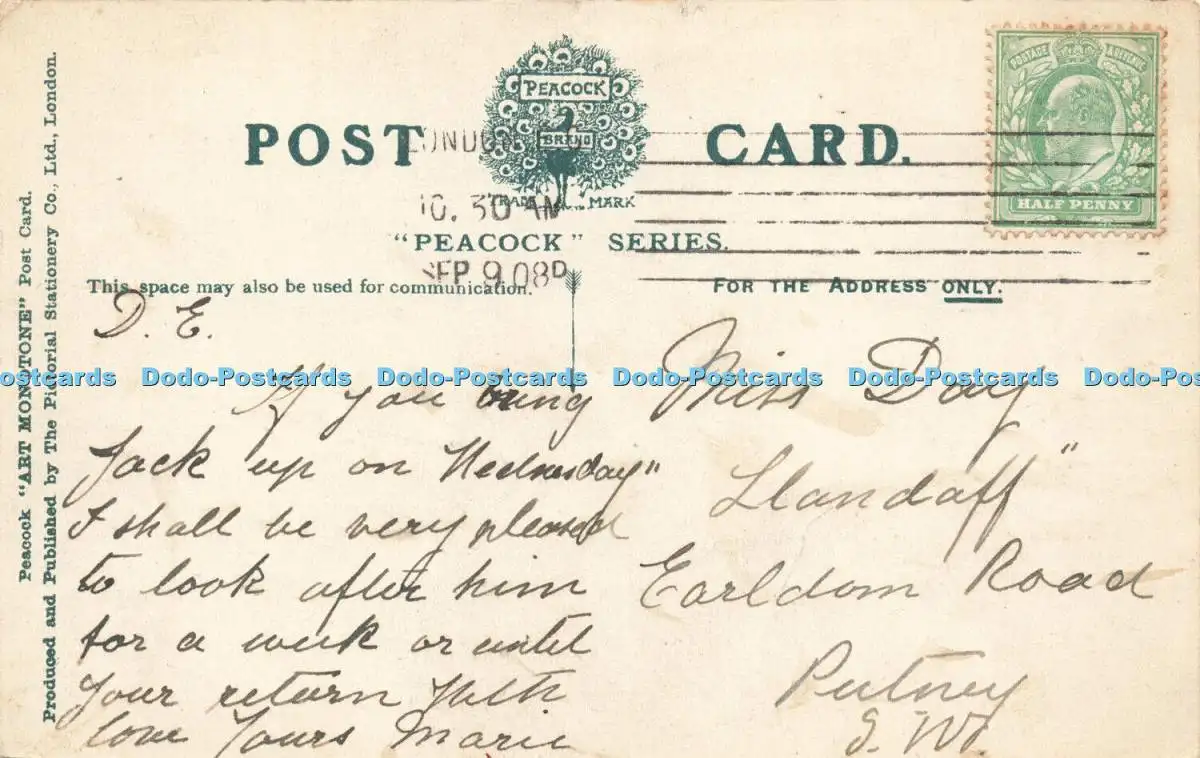 Peacock "ART MONOTONE" Post Card.
Produced and Published by The Pictorial Stationery Co., Ltd., London.
POST CARD.
PEACOCK
BRAND
TRADE MARK
"PEACOCK" SERIES.
LONDON
10.30 AM
SEP 9 08
POSTAGE & REVENUE
HALF PENNY
This space may also be used for communication.
FOR THE ADDRESS ONLY.
D. E.
If you bring
Jack up on Wednesday"
I shall be very pleased
to look after him
for a week or until
your return With
love Yours Marie
Miss Day
"Llandaff"
Earldom Road
Putney
S. W.
Dodo-Postcards Dodo-Postcards Dodo-Postcards Dodo-Postcards Dodo-Postcards Dodo-Postcards